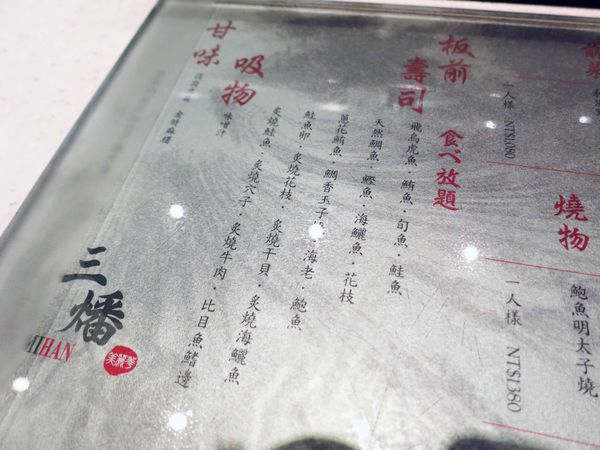 一人様 NT$1,080
燒物
鮑魚明太子燒
一人様 NT$1,380
板前
壽司
食べ放題
飛烏虎魚·鮪魚·旬魚·鮭魚
天然鯛魚·鰹魚·海鱺魚·花枝
蔥花鮪魚·鯛香玉子
海老·鮑魚
鮭魚卵·炙燒花枝·炙燒干貝·炙燒海鱺魚
炙燒鮭魚·炙燒穴子·炙燒牛肉、比目魚鰭邊
吸物
味噌汁
甘味
三燔
HAN
美麗華